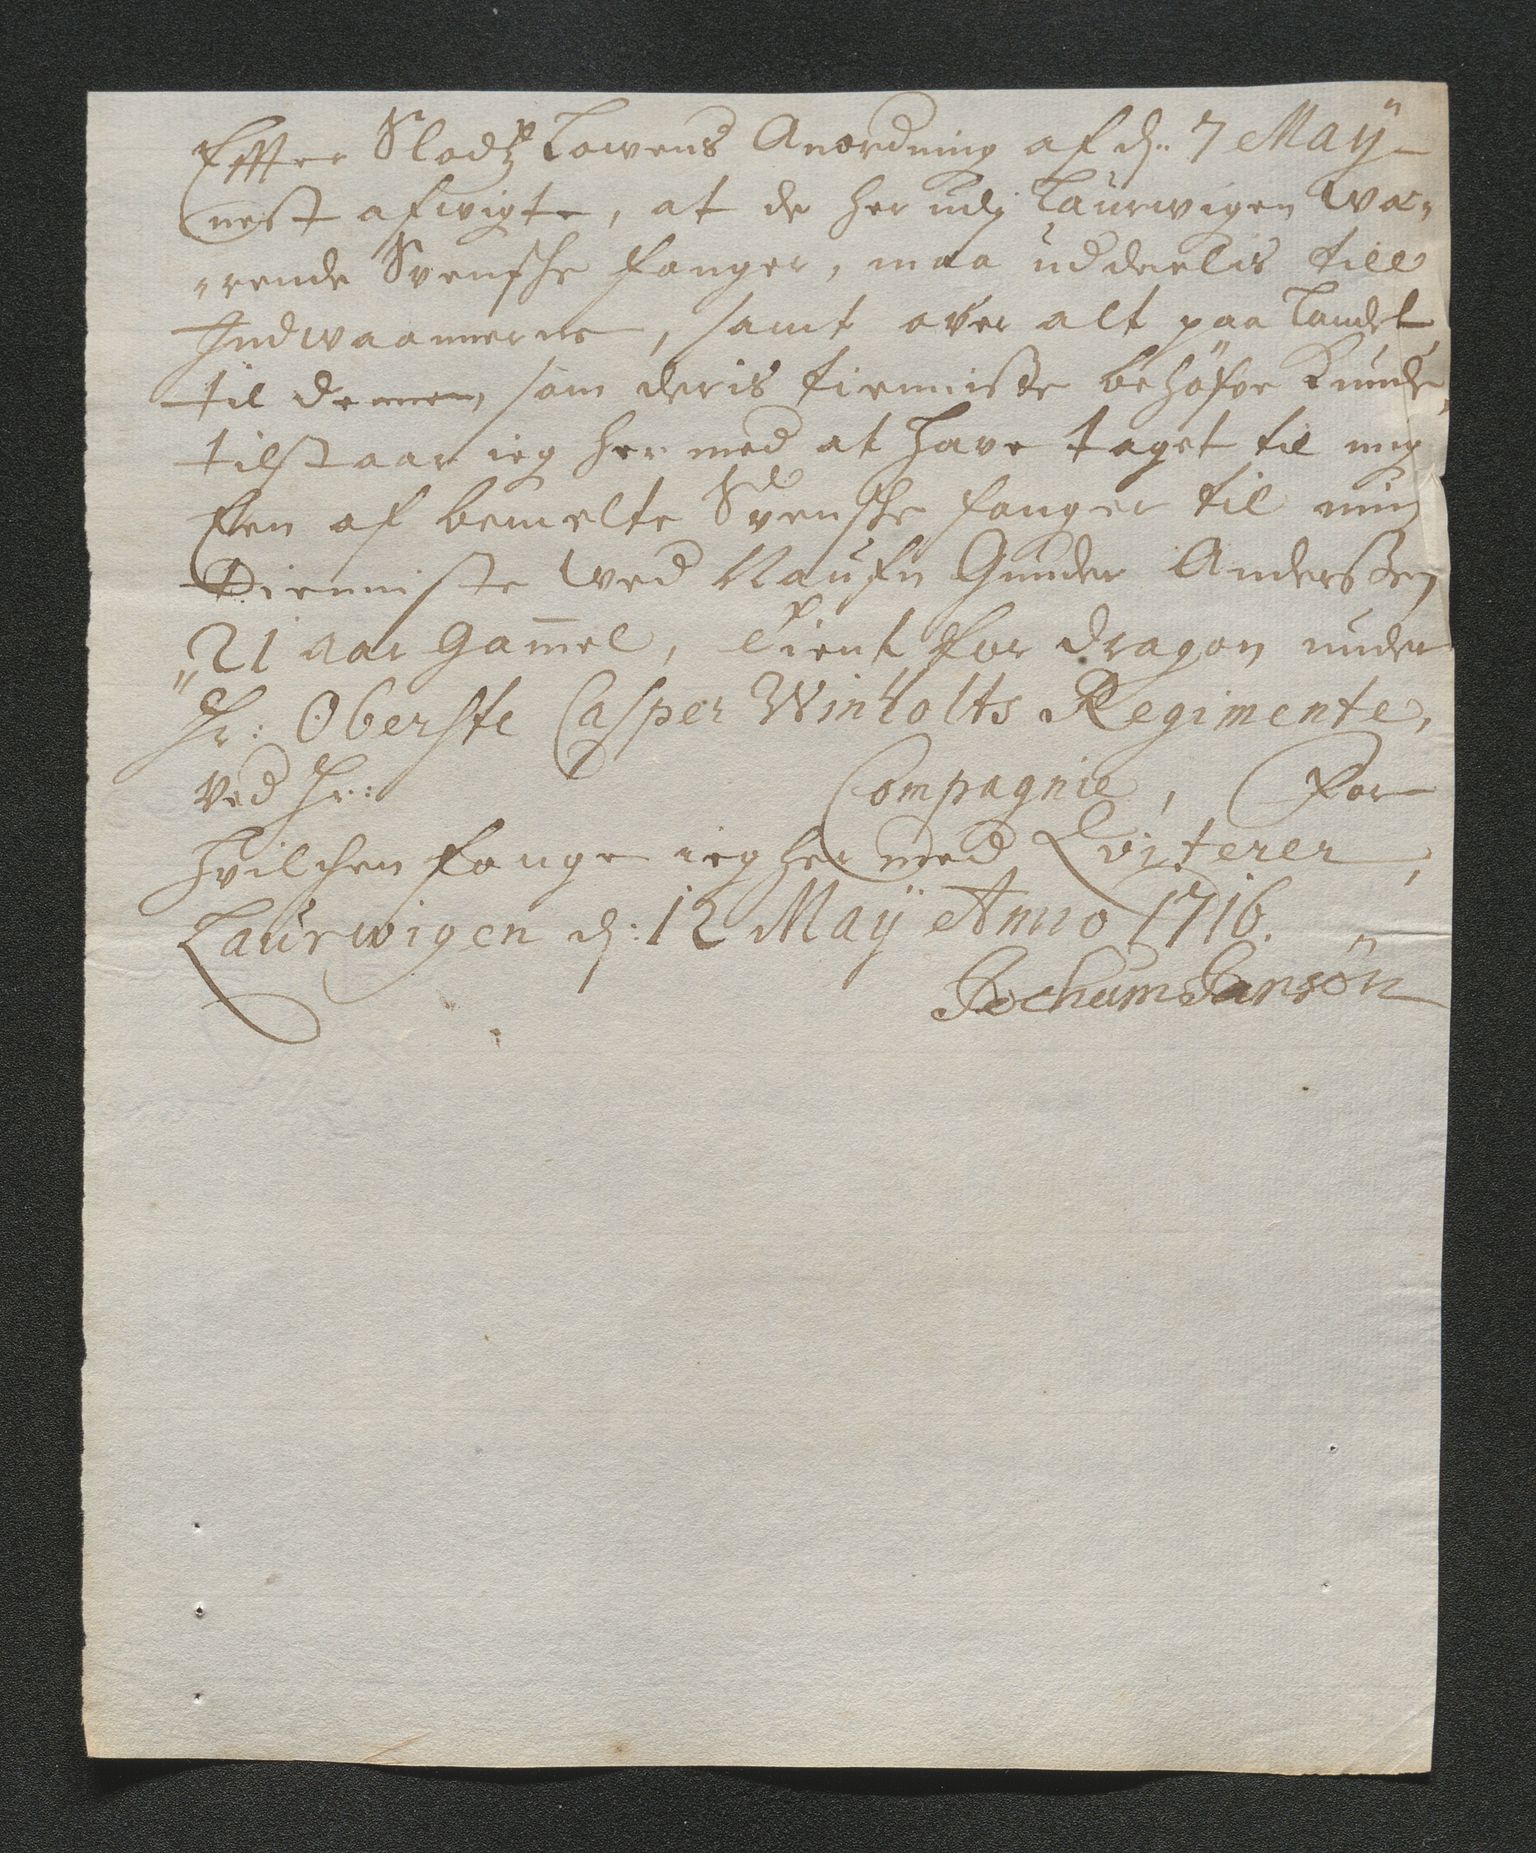 Effter Slodtz Lowens Anordning af d: 7 Maÿ
nest afvigte, at de her udj Laurwigen wæ-
rende Svenske fanger, maa uddeelis till
Indwaanerne, samt over alt paa Landet
til dennem, som deris tienniste behöfve kunde,
tilstaar ieg her med at have taget til mig
Een af bemelte Svenske fanger til min
Tienniste ved Naufn Gunder Anderssen
21 aar Gam̄el, Tient for dragon under
Hr: Oberste Casper Winholts Regimente,
ved Hr: Compagnie, For
hvilchen fange ieg her med Qviterer,
Laurwigen d: 12 Maÿ Anno 1716.
Jochum Jansön